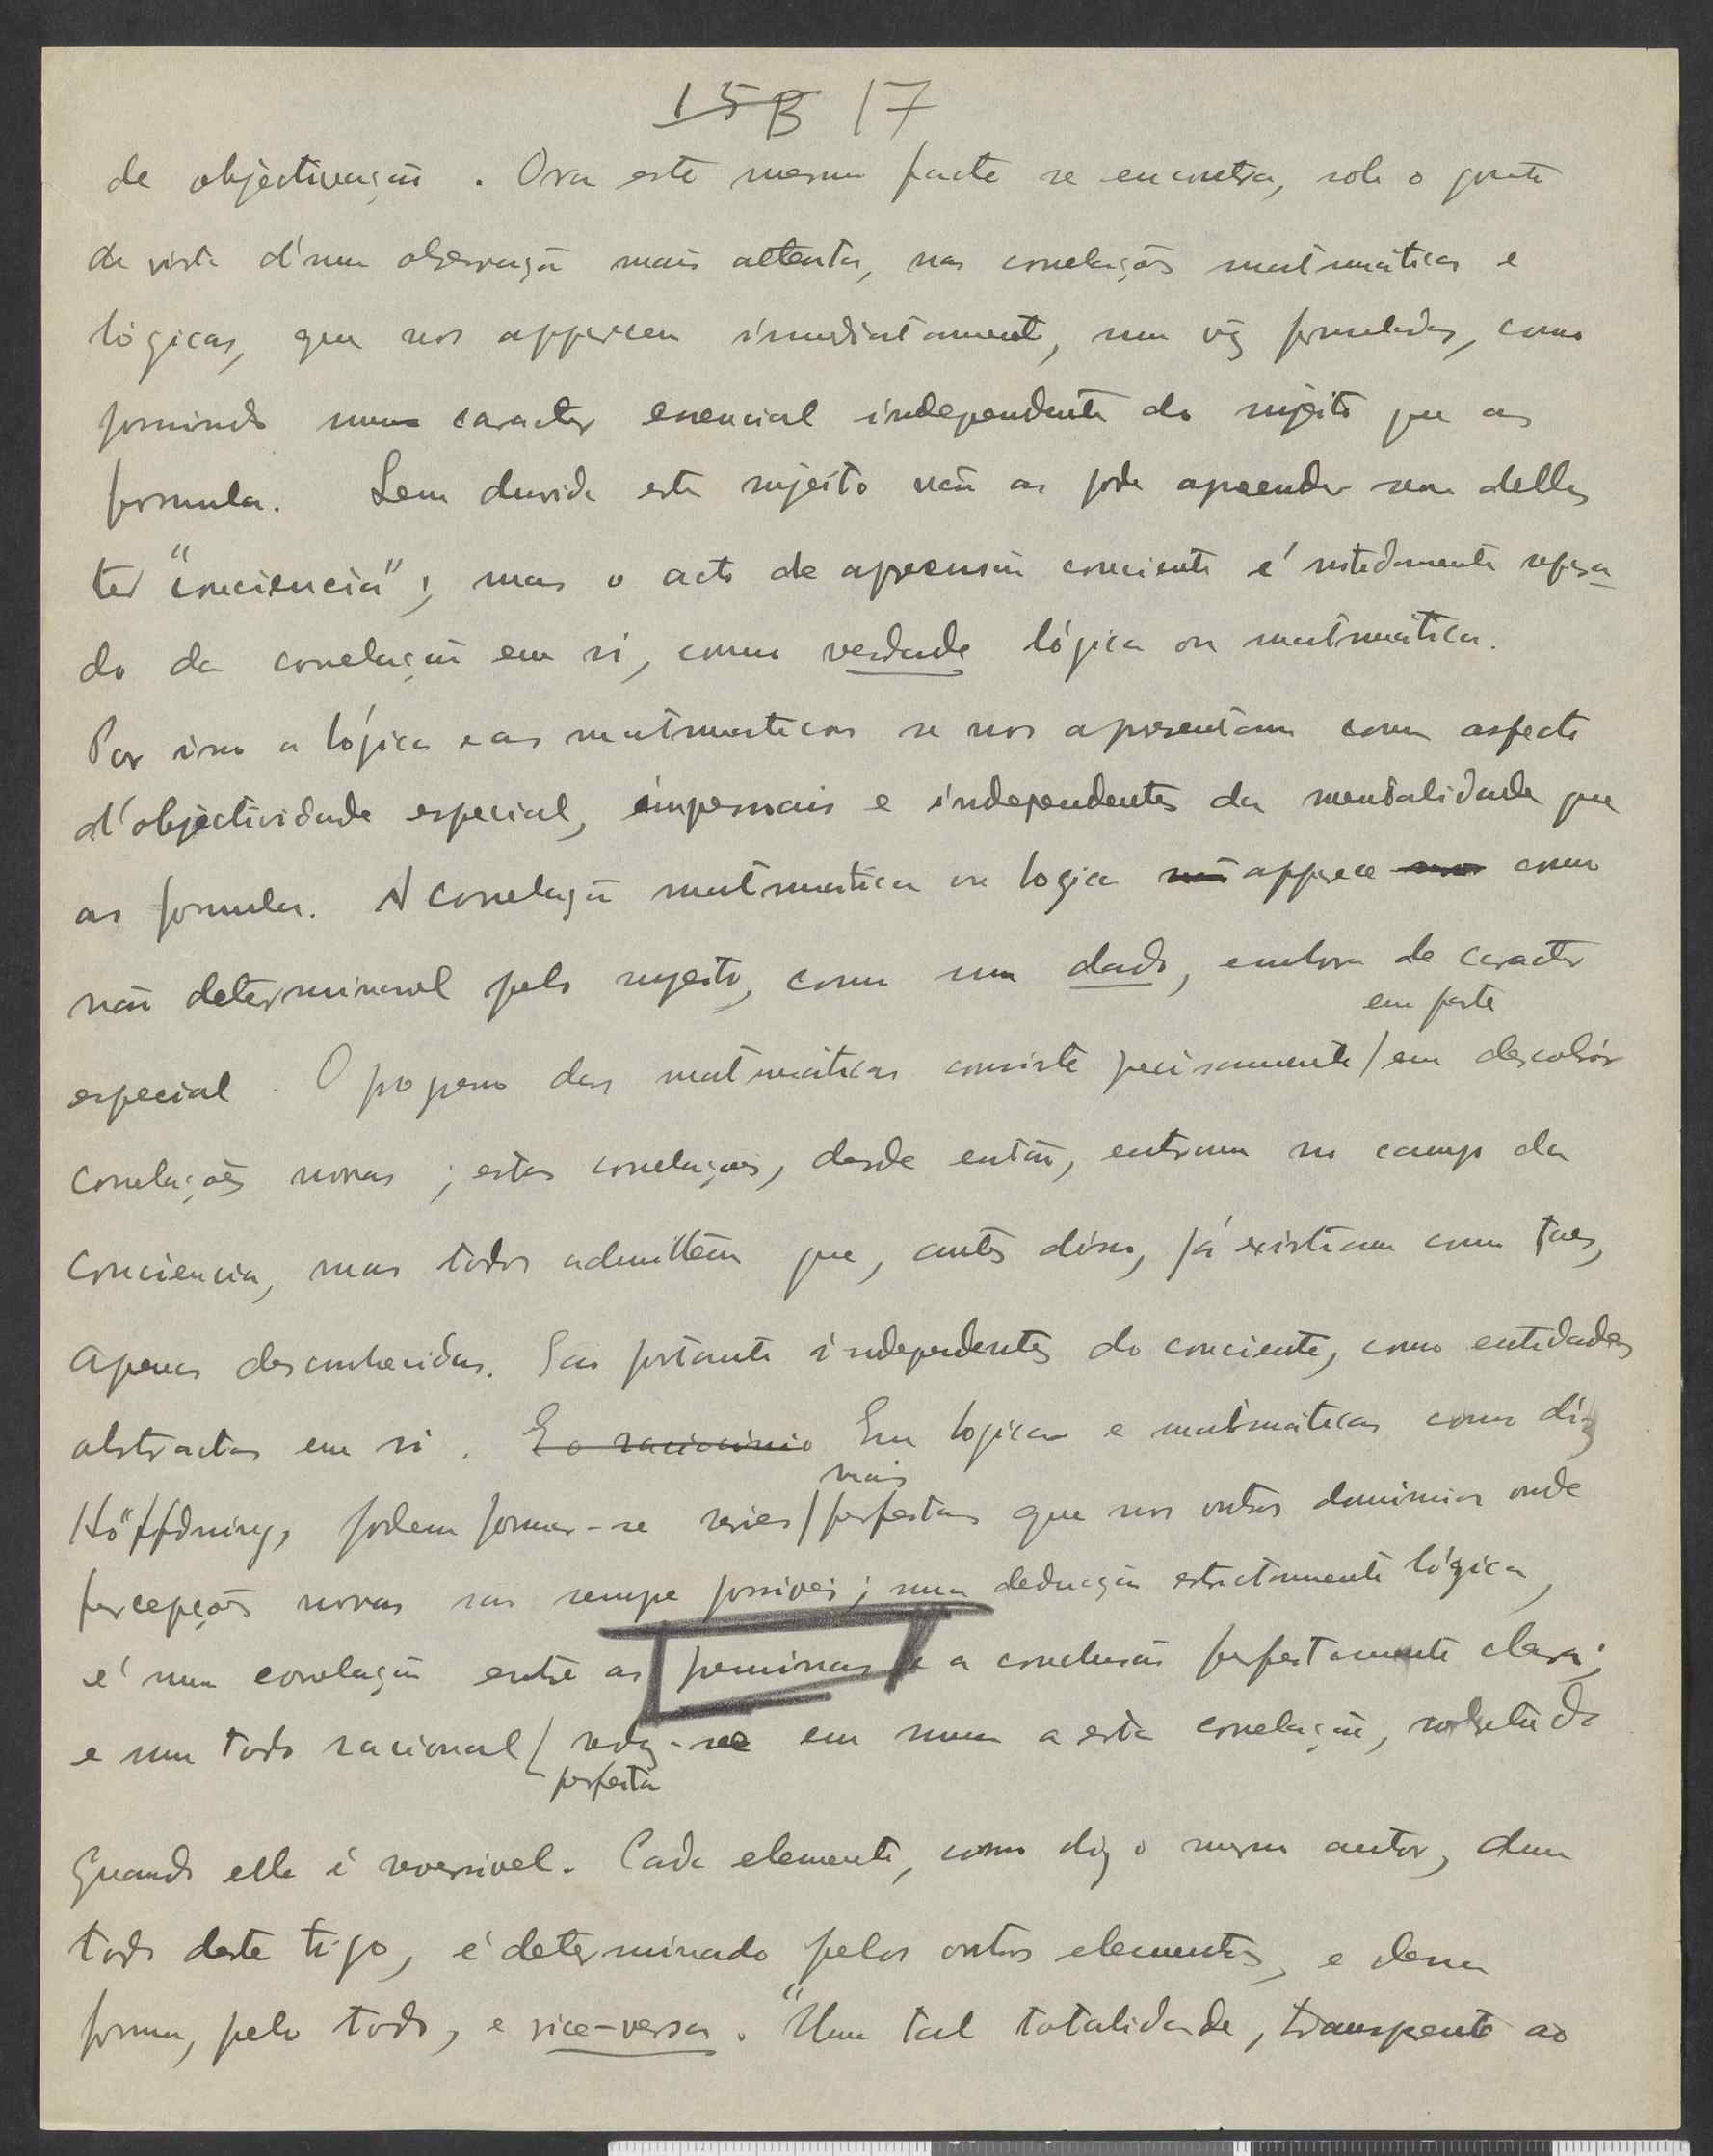 15B 17
de objectivação. Ora este mesmo facto se encontra, sob o ponto
de vista d'uma observação mais attenta, nas correlações matematicas e
lógicas, que nos apparecem immediatamente, uma vez formuladas, como
possuindo um caracter essencial independente do sujeito que as
formula. Sem duvida este sujeito não as pode apreender sem dellas
ter "conciencia"; mas o acto de apreensão conciente é nitidamente separa
do da correlação em si, como verdade lógica ou matemática.
Por isso a lógica e as matematicas se nos apresentam com aspecto
d'objectividade especial, impessoais e independentes da mentalidade que
as formula. A correlação matematica ou logica não apparece nos como
não determinavel pelo sujeito, como um dado, embora de caracter
em parte
especial. O progresso das matemáticas consiste precisamente / em descobrir
correlações novas; estas correlações, desde então, entram no campo da
conciencia, mas todos admittem que, antes disso, já existiam como taes,
apenas desconhecidas. São portanto independentes do conciente, como entidades
abstractas em si. E o raciocinio Em logica e matemáticas como diz
mais
Höffdning, podem formar-se series / perfeitas que nos outros dominios onde
percepções novas são sempre possiveis; uma deducção estrictamente lógica,
é uma correlação entre as premissas e a conclusão perfeitamente clara;
e um todo racional / reduz-se em summa a esta correlação, sobretudo
perfeito
quando ella é reversivel. Cada elemento, como diz o mesmo autor, dum
todo deste tipo, é determinado pelos outros elementos, e dessa
forma, pelo todo, e vice-versa. "Uma tal totalidade, transparente ao